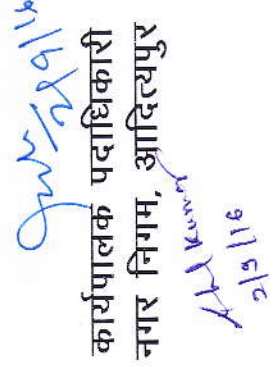 2/9/16
कार्यपालक पदाधिकारी
नगर निगम, आदित्यपुर
2/9/16